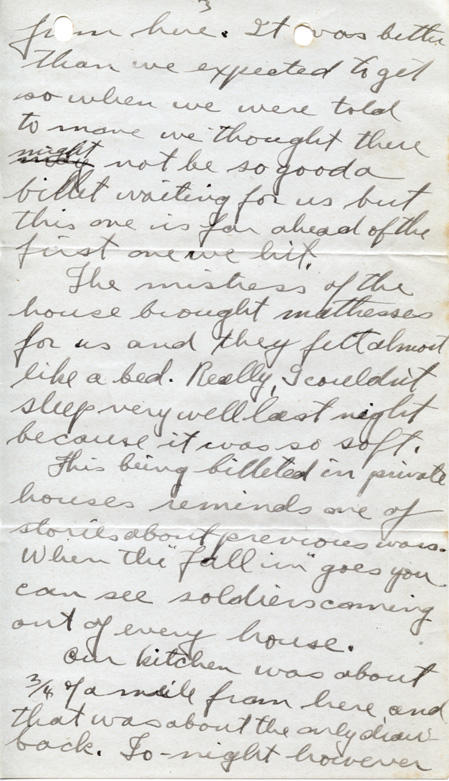 3
from here. It was better
than we expected to get
so when we were told
to move we thought there
might not be so good a
billet waiting for us but
this one is far ahead of the
first one we hit.
The mistress of the
house brought mattresses
for us and they felt almost
like a bed. Really, I couldn't
sleep very well last night
because it was so soft.
This being billeted in private
houses reminds one of
stories about previous wars.
When the "fall in" goes you
can see soldiers coming
out of every house.
Our kitchen was about
3/4 of a mile from here and
that was about the only draw
back. To-night however